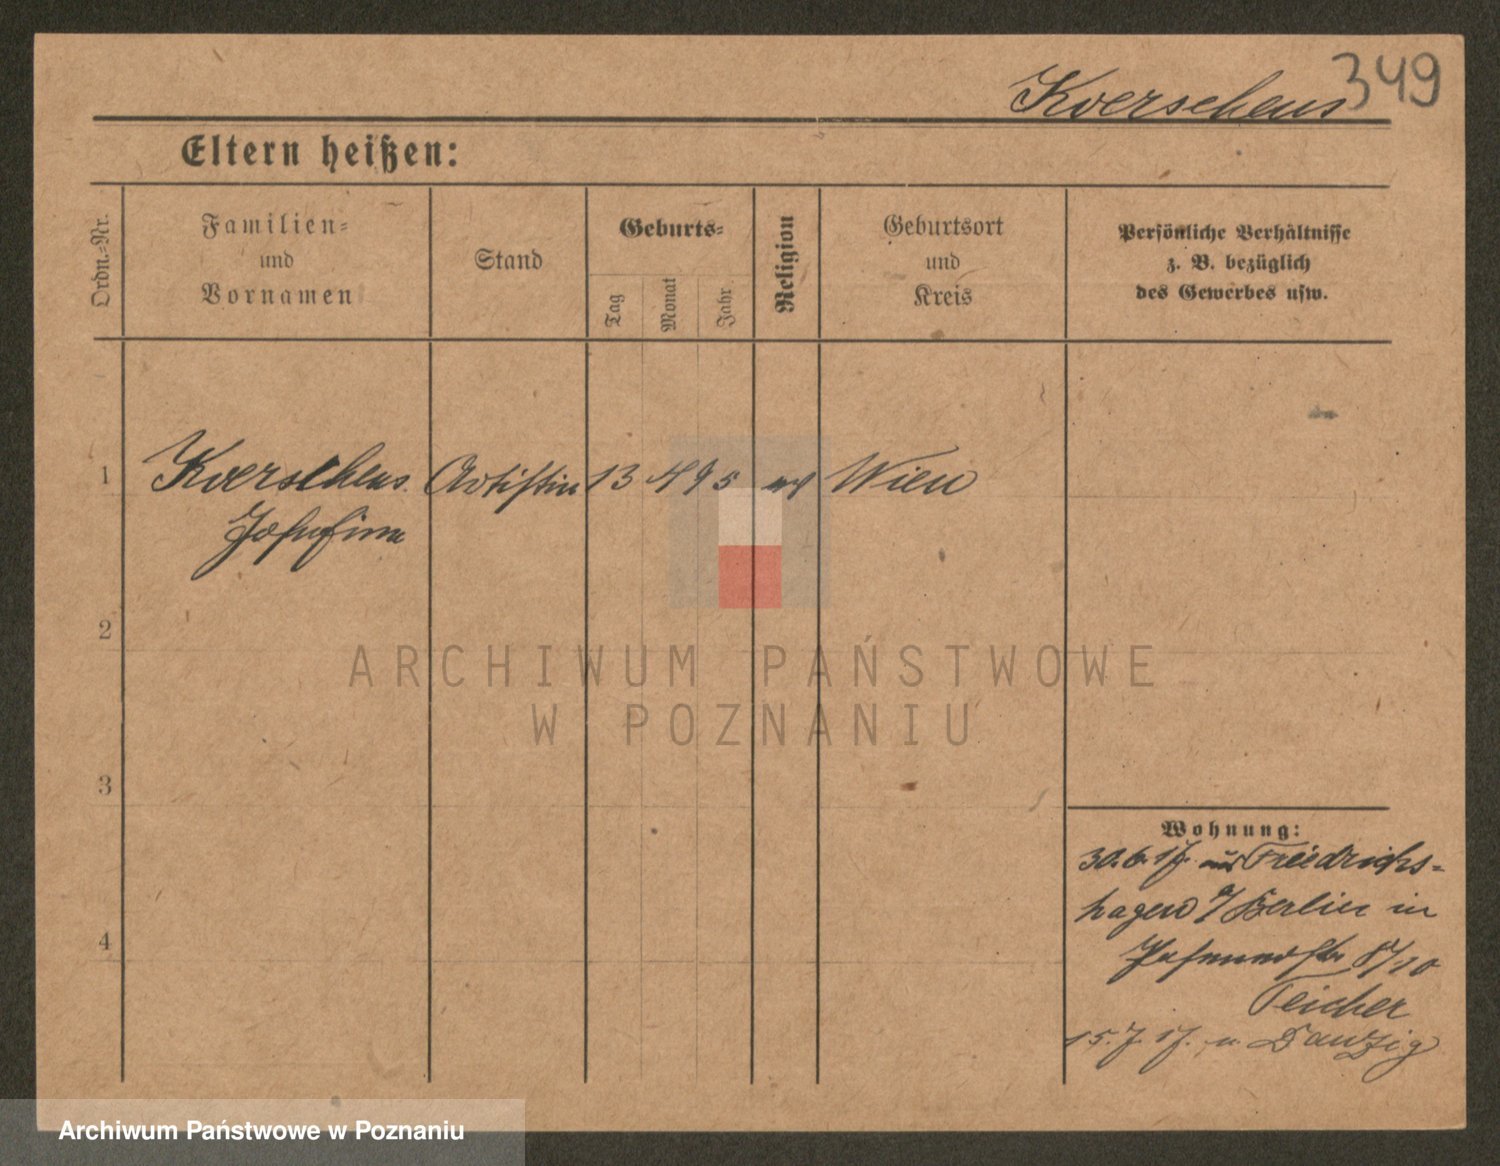 349
Kverschens
Eltern heißen:
Ordn.-Nr.
Familien-
und
Vornamen
Stand
Geburts-
Tag
Monat
Jahr
Religion
Geburtsort
und
Kreis
Persönliche Verhältnisse
z. B. bezüglich
des Gewerbes usw.
1
Kverschens Artistin 13 4 95 Wien
Josefine
2
3
4
Wohnung:
30.6.17. aus Friedrichs-
hagen b/Berlin in
8/10
Teicher
15.7.17. n. Danzig
ARCHIWUM PAŃSTWOWE
W POZNANIU
Archiwum Państwowe w Poznaniu